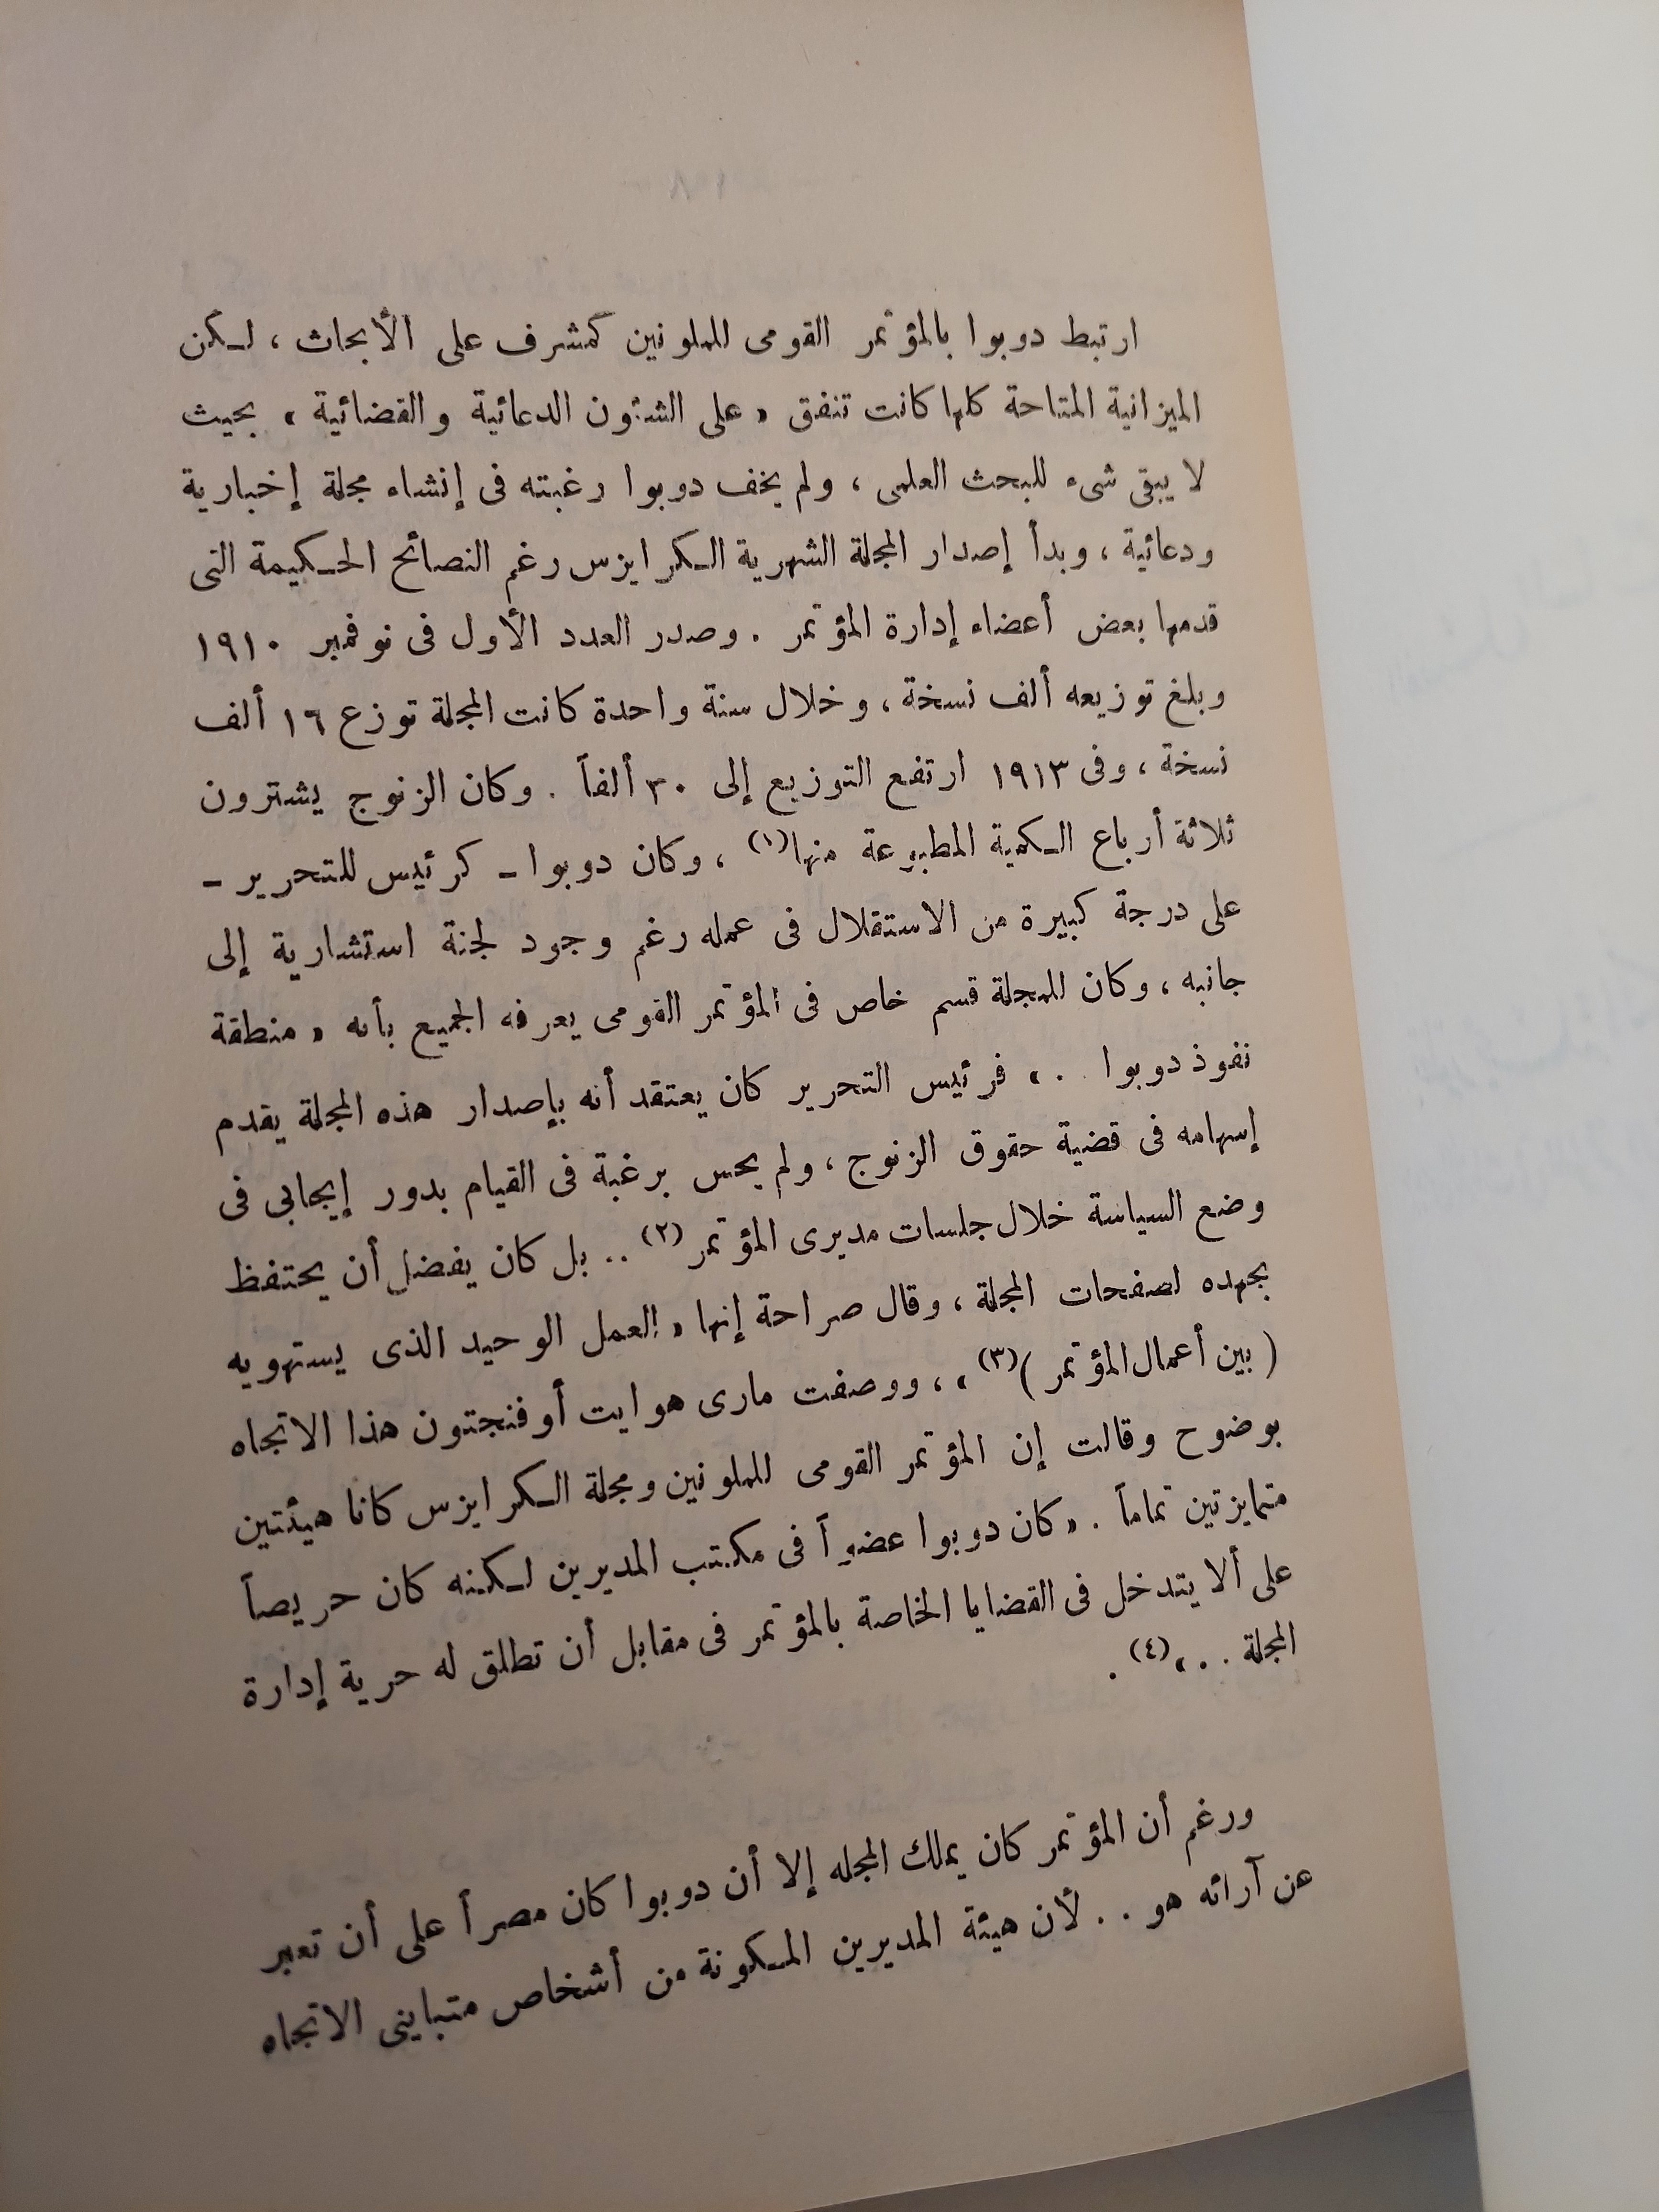 ارتبط دوبوا بالمؤتمر القومى للملونين كمشرف على الأبحاث ، لكن
الميزانية المتاحة كلها كانت تنفق « على الشئون الدعائية والقضائية » بحيث
لا يبقى شىء للبحث العلمى ، ولم يخف دوبوا رغبته فى إنشاء مجلة إخبارية
ودعائية ، وبدأ إصدار المجلة الشهرية الكرايزس رغم النصائح الحكيمة التى
قدمها بعض أعضاء إدارة المؤتمر . وصدر العدد الأول فى نوفمبر ١٩١٠
وبلغ توزيعه ألف نسخة ، وخلال سنة واحدة كانت المجلة توزع ١٦ ألف
نسخة ، وفى ١٩١٣ ارتفع التوزيع إلى ٣٠ ألفاً . وكان الزنوج يشترون
ثلاثة أرباع الكمية المطبوعة منها(١) ، وكان دوبوا - كرئيس للتحرير -
على درجة كبيرة من الاستقلال فى عمله رغم وجود لجنة استشارية إلى
جانبه ، وكان للمجلة قسم خاص فى المؤتمر القومى يعرفه الجميع بأنه « منطقة
نفوذ دوبوا . . » فرئيس التحرير كان يعتقد أنه بإصدار هذه المجلة يقدم
إسهامه فى قضية حقوق الزنوج ، ولم يحس برغبة فى القيام بدور إيجابى فى
وضع السياسة خلال جلسات مديرى المؤتمر(٢) . . بل كان يفضل أن يحتفظ
بجهده لصفحات المجلة ، وقال صراحة إنها « العمل الوحيد الذى يستهويه
( بين أعمال المؤتمر )(٣) » ، ووصفت مارى هوايت أوفنجتون هذا الاتجاه
بوضوح وقالت إن المؤتمر القومى للملونين ومجلة الكرايزس كانا هيئتين
متمايزتين تماماً . « كان دوبوا عضواً فى مكتب المديرين لكنه كان حريصاً
على ألا يتدخل فى القضايا الخاصة بالمؤتمر فى مقابل أن تطلق له حرية إدارة
المجلة . . »(٤) .
ورغم أن المؤتمر كان يملك المجله إلا أن دوبوا كان مصراً على أن تعبر
عن آرائه هو . . لأن هيئة المديرين المكونة من أشخاص متباينى الاتجاه